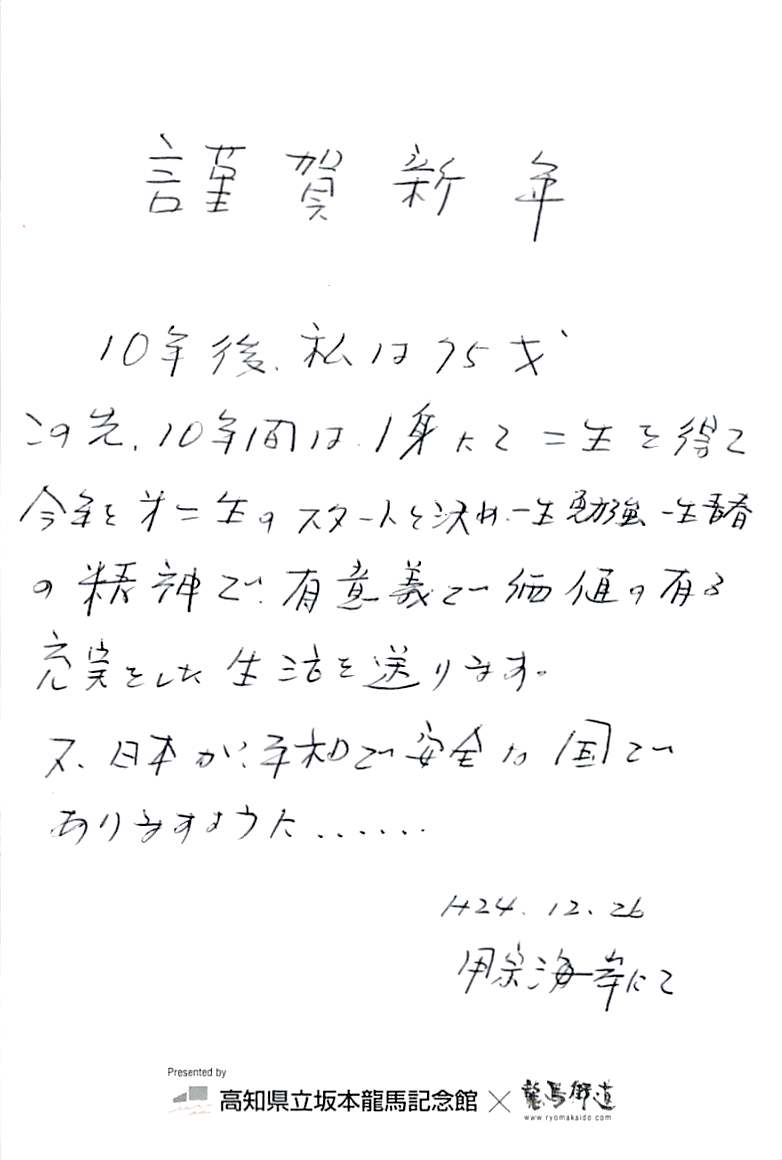 謹賀新年
10年後、私は75才
この先、10年間は、1身にて二生を得て
今年を才二生のスタートと決め、一生勉強、一生青春
の精神で、有意義で価値の有る
充実をした生活を送ります。
又、日本が、平和で安全な国で
ありますように......
H24.12.26
甲宗海岸にて
Presented by
高知県立坂本龍馬記念館×龍馬街道
www.ryomakaido.com